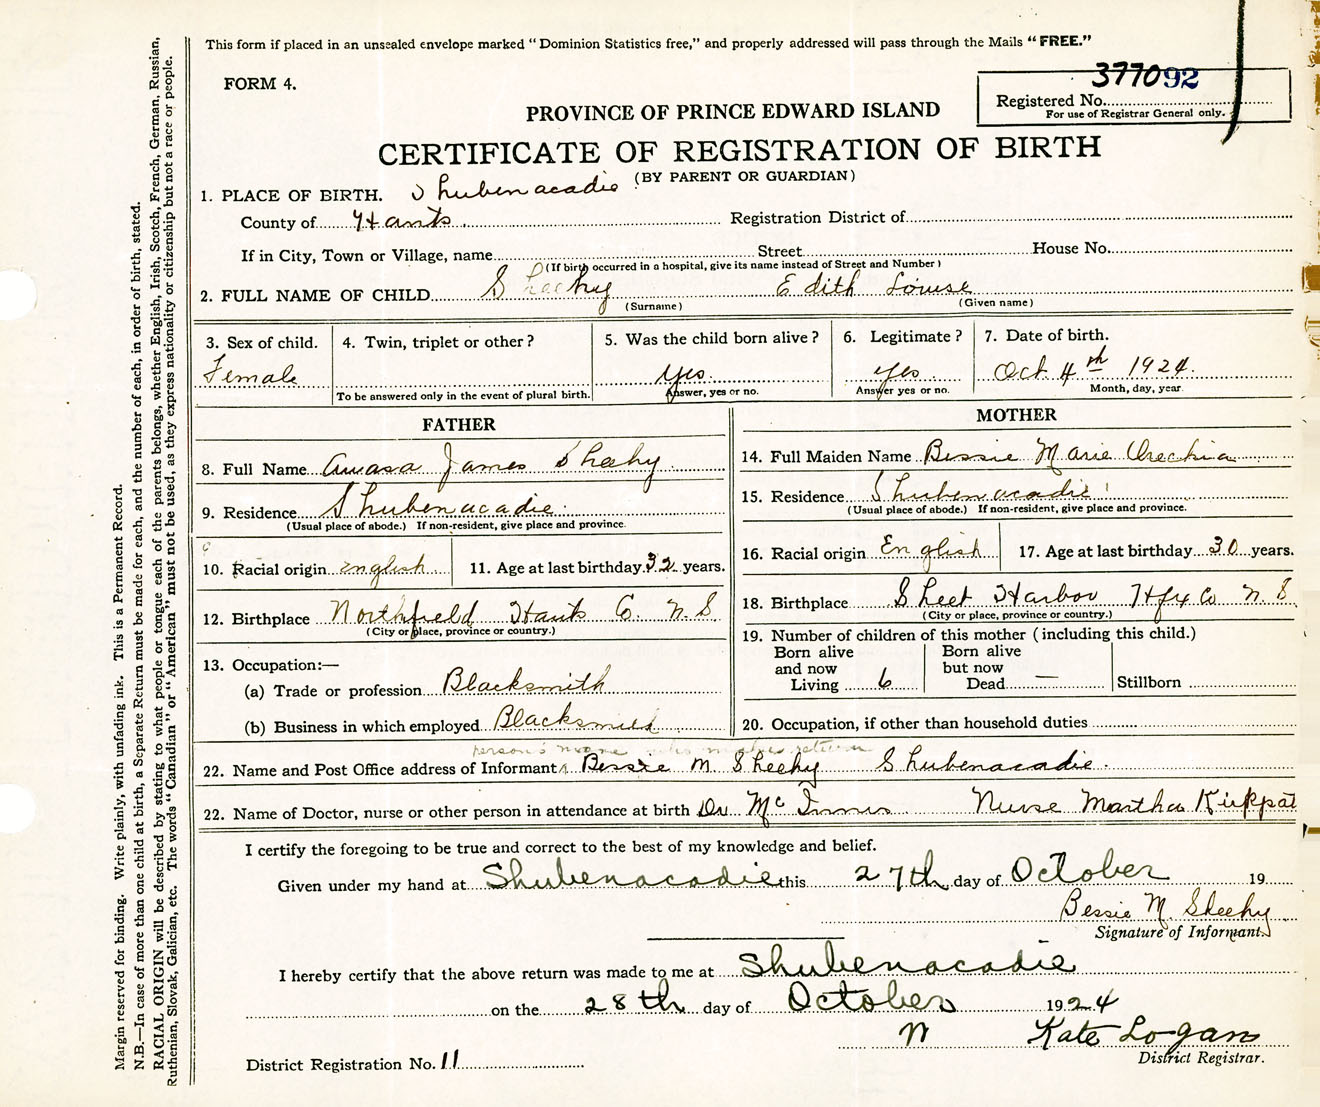 This form if placed in an unsealed envelope marked "Dominion Statistics free," and properly addressed will pass through the Mails "FREE."
FORM 4.
377092
Registered No.
For use of Registrar General only.
PROVINCE OF PRINCE EDWARD ISLAND
CERTIFICATE OF REGISTRATION OF BIRTH
(BY PARENT OR GUARDIAN)
1. PLACE OF BIRTH. Shubenacadie
County of Hants Registration District of
If in City, Town or Village, name Street House No.
(If birth occurred in a hospital, give its name instead of Street and Number)
2. FULL NAME OF CHILD Sheehy Edith Louise
(Surname) (Given name)
3. Sex of child. 4. Twin, triplet or other? 5. Was the child born alive? 6. Legitimate? 7. Date of birth.
Female yes yes Oct 4th 1924.
To be answered only in the event of plural birth. Answer, yes or no. Answer yes or no. Month, day, year.
FATHER
8. Full Name Amasa James Sheehy
9. Residence Shubenacadie
(Usual place of abode.) If non-resident, give place and province.
10. Racial origin english 11. Age at last birthday 32 years.
12. Birthplace Northfield Hants Co. N. S
(City or place, province or country.)
13. Occupation:—
(a) Trade or profession Blacksmith
(b) Business in which employed Blacksmith
MOTHER
14. Full Maiden Name Bessie Marie
15. Residence Shubenacadie
(Usual place of abode.) If non-resident, give place and province.
16. Racial origin English 17. Age at last birthday 30 years.
18. Birthplace Sheet Harbor Hfx Co N. S.
(City or place, province or country.)
19. Number of children of this mother (including this child.)
Born alive and now Living 6 Born alive but now Dead — Stillborn
20. Occupation, if other than household duties
person's name who makes return
22. Name and Post Office address of Informant Bessie M. Sheehy Shubenacadie.
22. Name of Doctor, nurse or other person in attendance at birth Dr. McInnis Nurse Martha Kirkpat
I certify the foregoing to be true and correct to the best of my knowledge and belief.
Given under my hand at Shubenacadie this 27th day of October 19
Bessie M. Sheehy
Signature of Informant.
I hereby certify that the above return was made to me at Shubenacadie
on the 28th day of October 1924
N Kate Logan
District Registrar.
District Registration No. 11
Margin reserved for binding. Write plainly, with unfading ink. This is a Permanent Record.
N.B.—In case of more than one child at birth, a Separate Return must be made for each, and the number of each, in order of birth, stated.
RACIAL ORIGIN will be described by stating to what people or tongue each of the parents belongs, whether English, Irish, Scotch, French, German, Russian,
Ruthenian, Slovak, Galician, etc. The words "Canadian" or "American" must not be used, as they express nationality or citizenship but not a race or people.